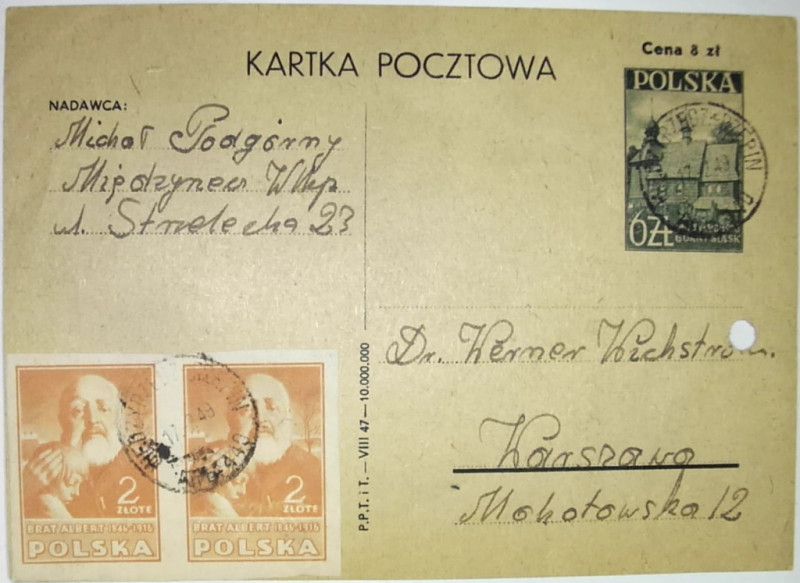 KARTKA POCZTOWA
Cena 8 zł
POLSKA
6 Zł
GÓRNY ŚLĄSK
NADAWCA:
Michał Podgórny
Międzyrzecz Wlkp
ul. Strzelecka 23
Dr. Werner Wichström.
Warszawa
Mokotowska 12
P.P.T. i T. — VIII 47 — 10.000.000
2
ZŁOTE
BRAT ALBERT 1846-1916
POLSKA
2
ZŁOTE
BRAT ALBERT 1846-1916
POLSKA